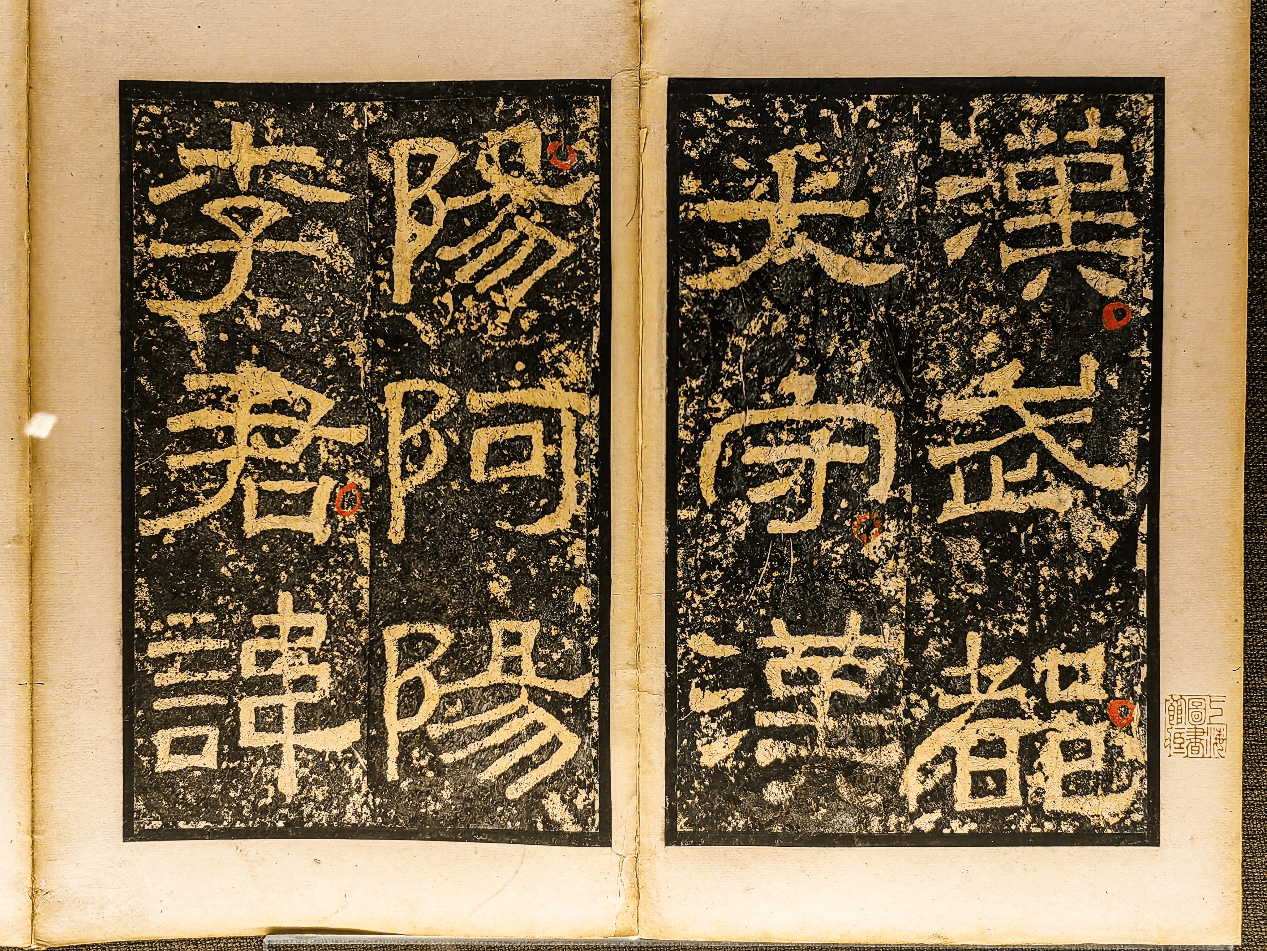 漢武都
太守漢
陽阿陽
李君諱
上海圖書館藏